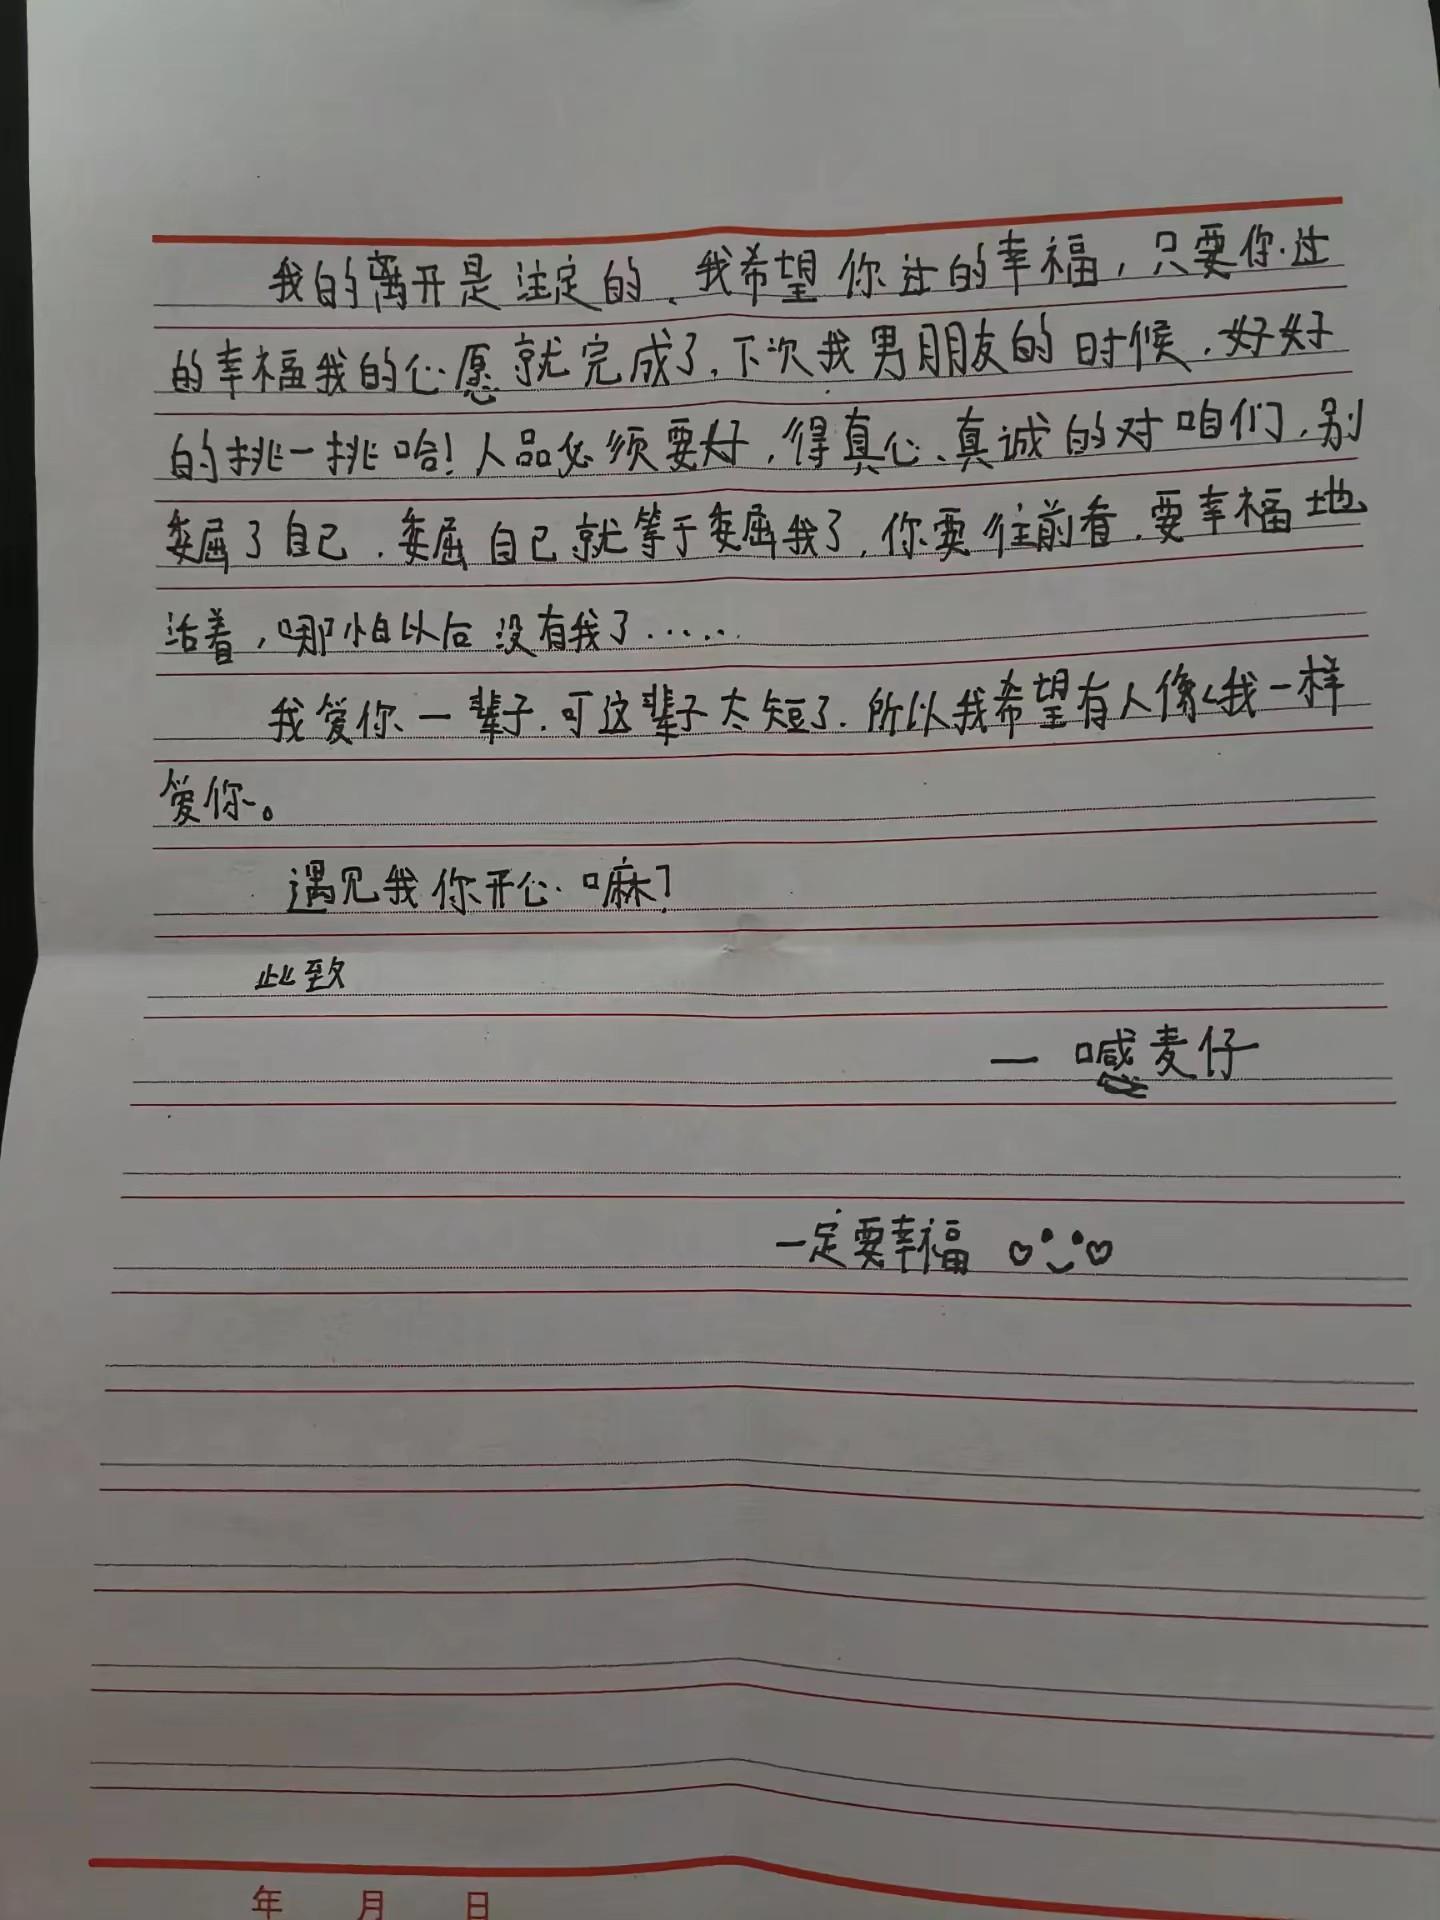 我的离开是注定的，我希望你过的幸福，只要你过
的幸福我的心愿就完成了，下次找男朋友的时候，好好
的挑一挑哈！人品必须要好，得真心、真诚的对咱们，别
委屈了自己，委屈自己就等于委屈我了，你要往前看，要幸福地
活着，哪怕以后没有我了……
我爱你一辈子，可这辈子太短了，所以我希望有人像我一样
爱你。
遇见我你开心嘛？
此致
— 喊麦仔
一定要幸福
年 月 日